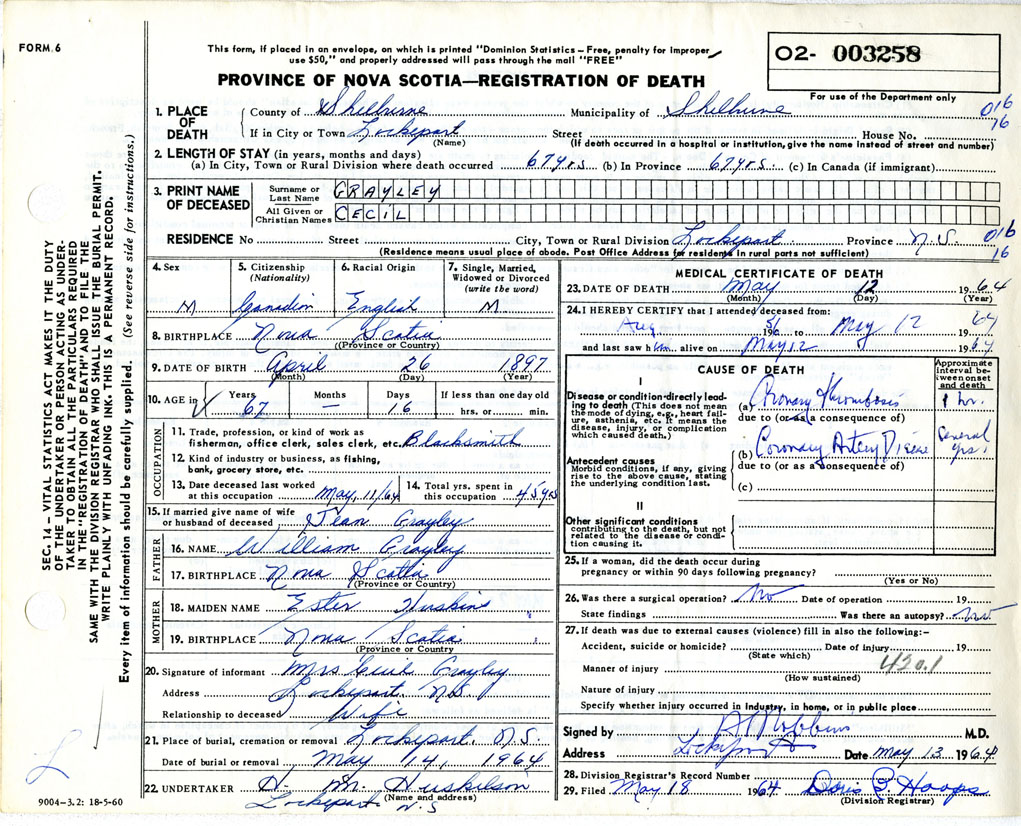 FORM. 6
This form, if placed in an envelope, on which is printed "Dominion Statistics – Free, penalty for improper
use $50," and properly addressed will pass through the mail "FREE"
PROVINCE OF NOVA SCOTIA—REGISTRATION OF DEATH
O2- 003258
For use of the Department only
016
16
1. PLACE OF DEATH
County of Shelburne Municipality of Shelburne
If in City or Town Lockeport Street House No.
(Name) (If death occurred in a hospital or institution, give the name instead of street and number)
2. LENGTH OF STAY (in years, months and days)
(a) In City, Town or Rural Division where death occurred 67 yrs. (b) In Province 67 yrs. (c) In Canada (if immigrant)
3. PRINT NAME OF DECEASED
Surname or Last Name GRAYLEY
All Given or Christian Names CECIL
RESIDENCE No Street City, Town or Rural Division Lockeport Province N.S.
016
16
(Residence means usual place of abode. Post Office Address for residents in rural parts not sufficient)
4. Sex
M
5. Citizenship
(Nationality)
Canadin
6. Racial Origin
English
7. Single, Married,
Widowed or Divorced
(write the word)
M
8. BIRTHPLACE Nova Scotia
(Province or Country)
9. DATE OF BIRTH April 26 1897
(Month) (Day) (Year)
10. AGE in Years Months Days If less than one day
67 — 16 hrs. or min.
OCCUPATION
11. Trade, profession, or kind of work as
fisherman, office clerk, sales clerk, etc. Blacksmith
12. Kind of industry or business, as fishing,
bank, grocery store, etc.
13. Date deceased last worked
at this occupation May, 11/64
14. Total yrs. spent in
this occupation 45 yrs
15. If married give name of wife
or husband of deceased Jean Grayley
FATHER
16. NAME William Grayley
17. BIRTHPLACE Nova Scotia
(Province or Country)
MOTHER
18. MAIDEN NAME Ester Huskins
19. BIRTHPLACE Nova Scotia
(Province or Country
20. Signature of informant Mrs Cecil Grayley
Address Lockeport. NS
Relationship to deceased Wife
21. Place of burial, cremation or removal Lockeport. N.S.
Date of burial or removal May 14, 1964
22. UNDERTAKER H. M. Huskilson
(Name and address)
Lockeport N.S
9004—3.2: 18-5-60
MEDICAL CERTIFICATE OF DEATH
23. DATE OF DEATH May 12 1964
(Month) (Day) (Year)
24. I HEREBY CERTIFY that I attended deceased from:
Aug 5/ 196 to May 12 1964
and last saw him alive on May 12 1964
CAUSE OF DEATH
Approximate
interval be-
tween onset
and death
I
Disease or condition directly lead-
ing to death (This does not mean
the mode of dying, e.g., heart fail-
ure, asthenia, etc. It means the
disease, injury, or complication
which caused death.)
(a) Coronary Thrombosis 1 hr.
due to (or as a consequence of)
Antecedent causes
Morbid conditions, if any, giving
rise to the above cause, stating
the underlying condition last.
(b) Coronary Artery Disease Several yrs.
due to (or as a consequence of)
(c)
II
Other significant conditions
contributing to the death, but not
related to the disease or condi-
tion causing it.
25. If a woman, did the death occur during
pregnancy or within 90 days following pregnancy?
(Yes or No)
26. Was there a surgical operation? No Date of operation 19
State findings Was there an autopsy? No
27. If death was due to external causes (violence) fill in also the following:—
Accident, suicide or homicide? Date of injury 19
(State which)
420.1
Manner of injury
(How sustained)
Nature of injury
Specify whether injury occurred in Industry, in home, or in public place
Signed by Robbins M.D.
Address Lockeport Date May 13 1964
28. Division Registrar's Record Number
29. Filed May 18 1964 Doris P Hoops
(Division Registrar)
SEC. 14 – VITAL STATISTICS ACT MAKES IT THE DUTY
OF THE UNDERTAKER OR PERSON ACTING AS UNDER-
TAKER TO OBTAIN ALL THE PARTICULARS REQUIRED
IN THE "REGISTRATION OF DEATH" AND TO FILE THE
SAME WITH THE DIVISION REGISTRAR WHO SHALL ISSUE THE BURIAL PERMIT.
WRITE PLAINLY WITH UNFADING INK. THIS IS A PERMANENT RECORD.
Every item of information should be carefully supplied. (See reverse side for instructions.)